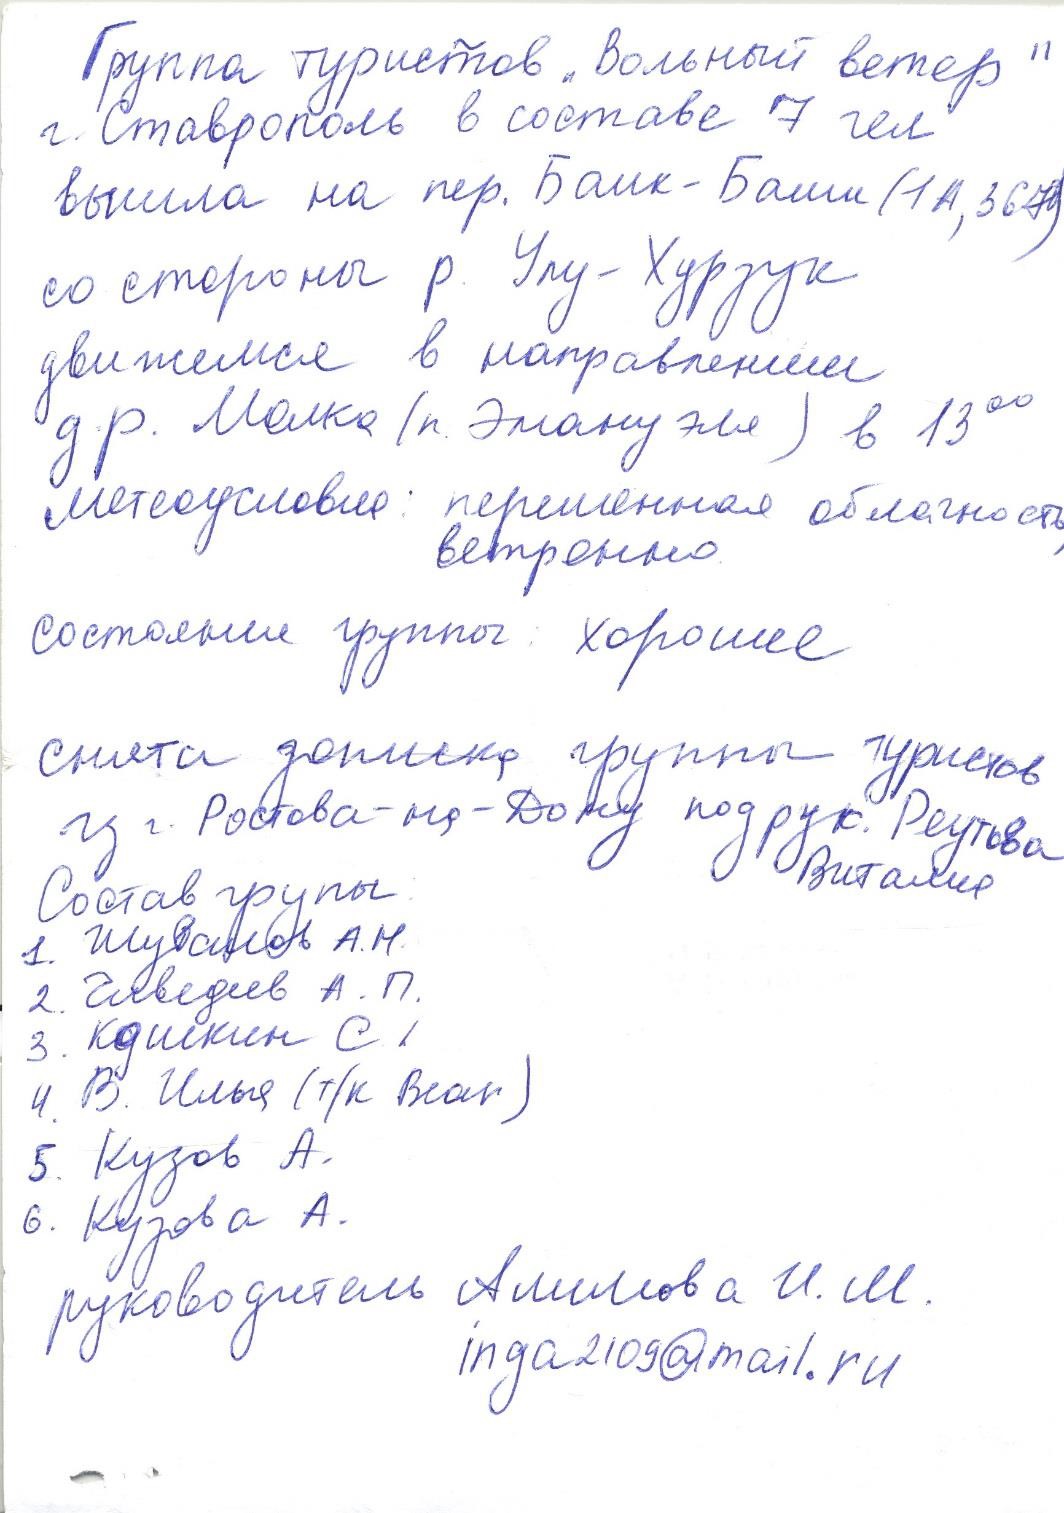 Группа туристов „Вольный ветер"
г. Ставрополь в составе 7 чел
вышла на пер. Баик-Баши (1А,
со стороны р. Улу-Хурзук
движемся в направлении
д.р. Малка (п. Эмануэля) в 13⁰⁰
Метеоусловия: переменная облачность,
ветренно
состояние группы: хорошее
снята записка группы туристов
из г. Ростова-на-Дону под рук. Реутова
Виталия
Состав групы
1. А.Н.
2. А.П.
3. С.
4. В. Илья (т/к
5. Кузов А.
6. Кузова А.
руководитель Алимова И.М.
inga2109@mail.ru